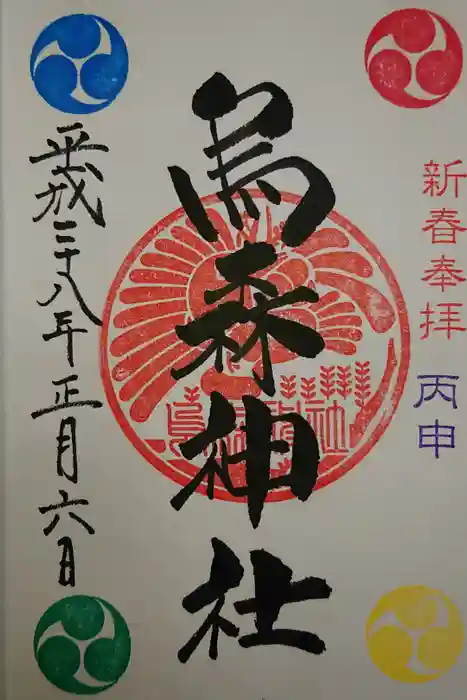 新春奉拝
丙申
烏森神社
烏森神社
平成二十八年正月六日